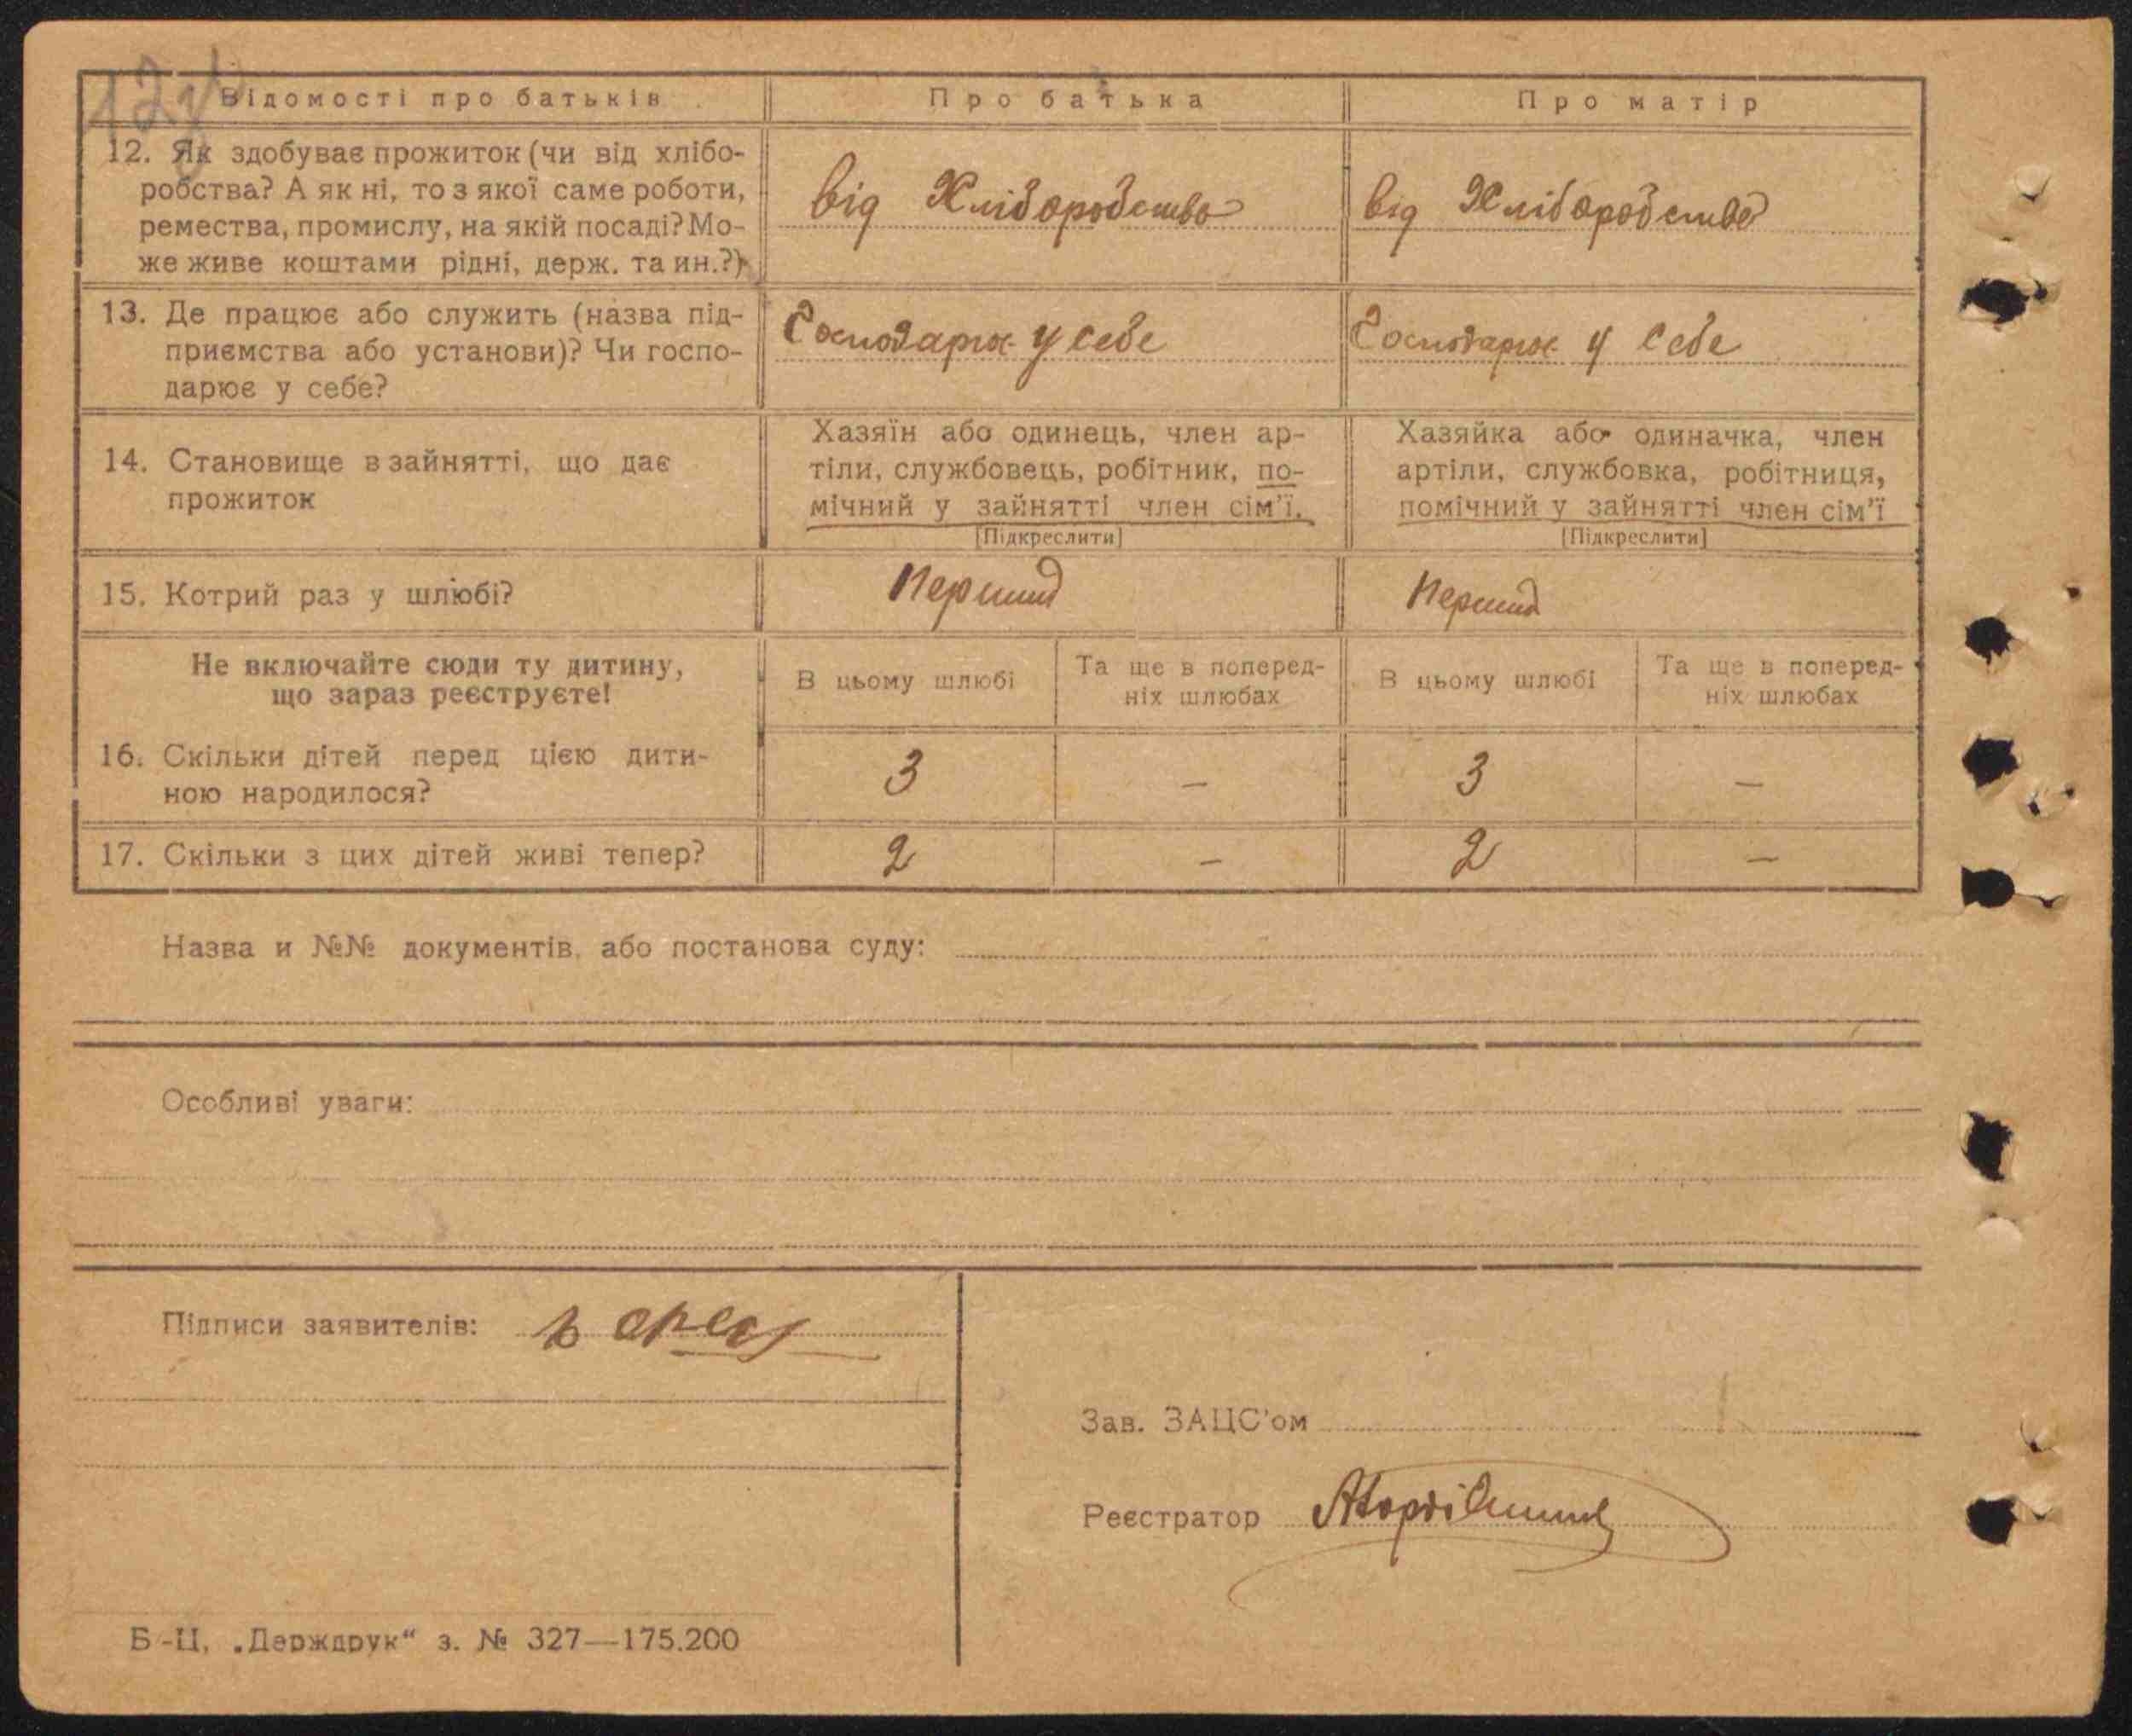 Відомості про батьків Про батька Про матір
12. Як здобуває прожиток (чи від хлібо-
робства? А як ні, то з якої саме роботи,
ремества, промислу, на якій посаді? Мо-
же живе коштами рідні, держ. та ин.?)
від Хліборобства
від Хліборобства
13. Де працює або служить (назва під-
приємства або установи)? Чи госпо-
дарює у себе?
Господарює у себе
Господарює у себе
14. Становище в зайнятті, що дає
прожиток
Хазяїн або одинець, член ар-
тіли, службовець, робітник, по-
мічний у зайнятті член сім'ї.
[Підкреслити]
Хазяйка або одиначка, член
артіли, службовка, робітниця,
помічний у зайнятті член сім'ї
[Підкреслити]
15. Котрий раз у шлюбі? Перший Перший
Не включайте сюди ту дитину,
що зараз реєструєте!
В цьому шлюбі
Та ще в поперед-
ніх шлюбах
В цьому шлюбі
Та ще в поперед-
ніх шлюбах
16. Скільки дітей перед цією дити-
ною народилося?
3 – 3 –
17. Скільки з цих дітей живі тепер? 2 – 2 –
Назва и №№ документів, або постанова суду:
Особливі уваги:
Підписи заявителів:
Зав. ЗАЦС'ом
Реєстратор
Б-Ц. „Держдрук“ з. № 327—175.200